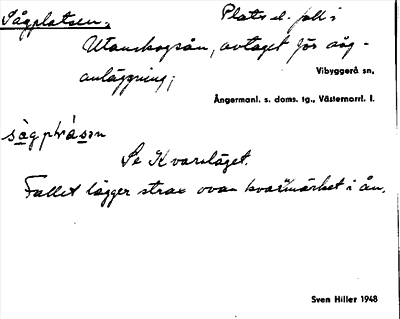 Sågplatsen, Plats el. fall i
Utanskogsån, avtaget för såg-
anläggning; Vibyggerå sn,
Ångermanl. s. doms. tg., Västernorrl. l.
Se Kvarnläget.
Fallet ligger strax ovan kvarnmärket i ån.
Sven Hiller 1948